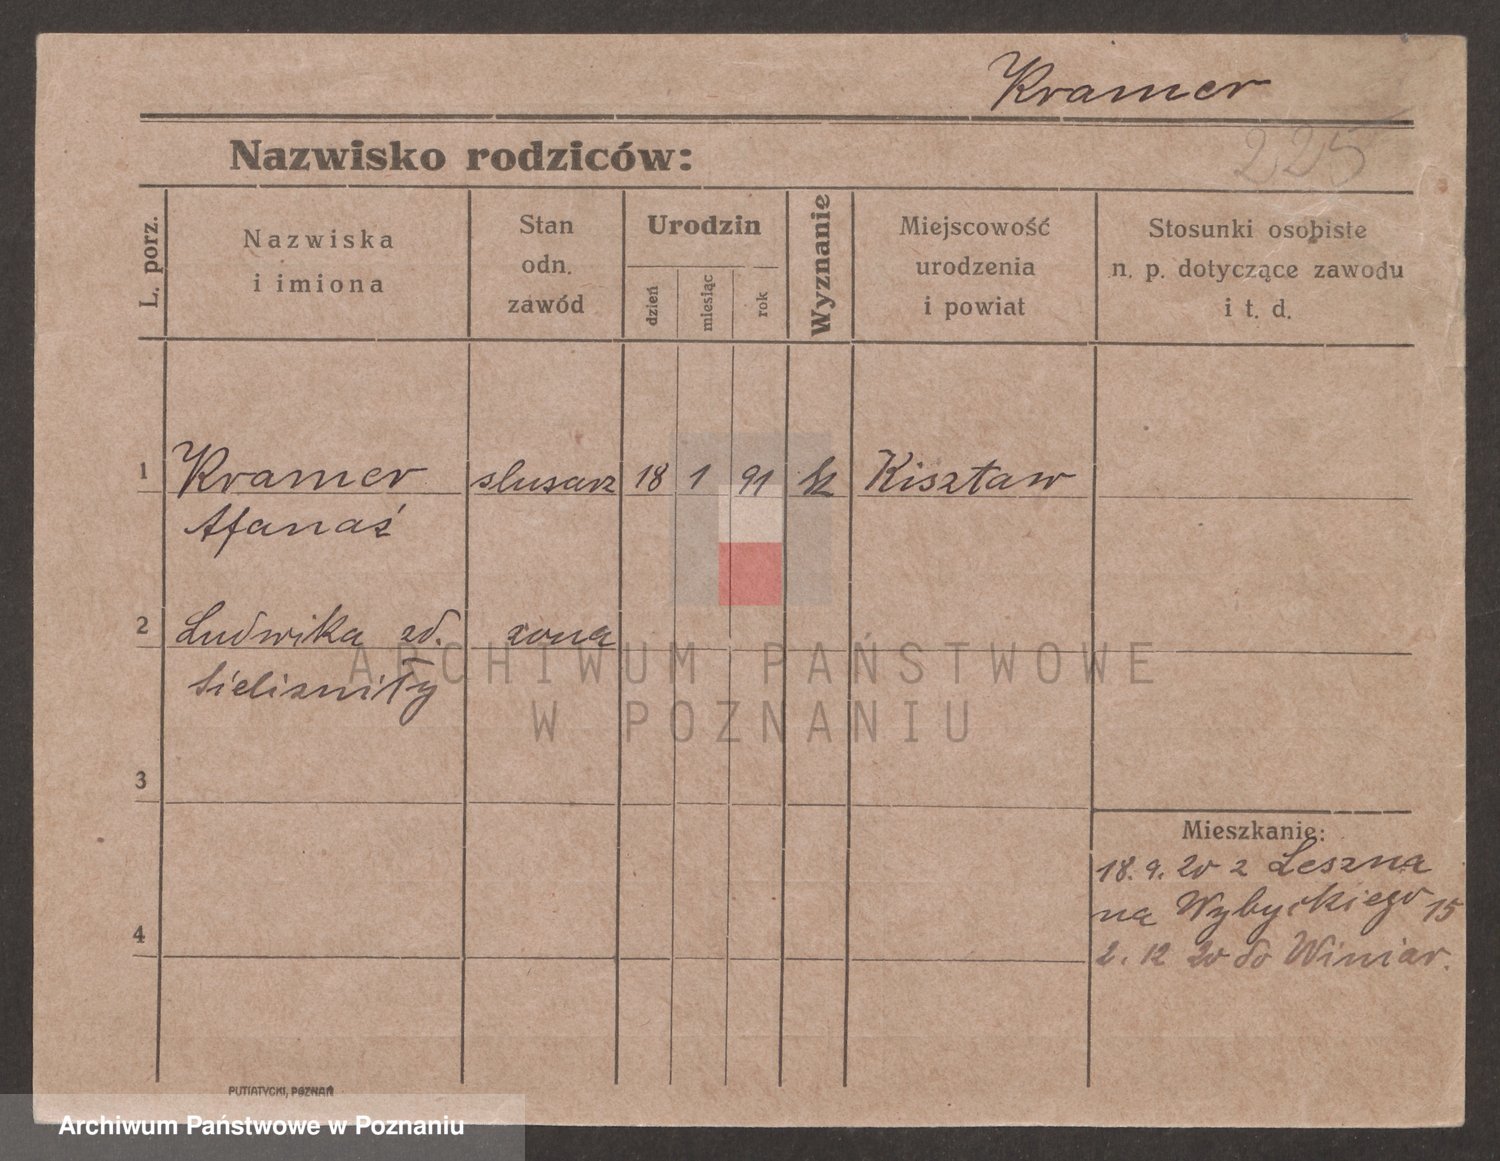 Kramer
225
Nazwisko rodziców:
L. porz.
Nazwiska
i imiona
Stan
odn.
zawód
Urodzin
dzień
miesiąc
rok
Wyznanie
Miejscowość
urodzenia
i powiat
Stosunki osobiste
n. p. dotyczące zawodu
i t. d.
1 Kramer slusarz 18 1 91 k Kisztaw
Afanaś
2 Ludwika zd. zona
ARCHIWUM PAŃSTWOWE
W POZNANIU
3
Mieszkanie:
18. 9. 20 z Leszna
na Wybyckiego 15
4
2. 12 20 do Winiar.
PUTIATYCKI, POZNAŃ
Archiwum Państwowe w Poznaniu